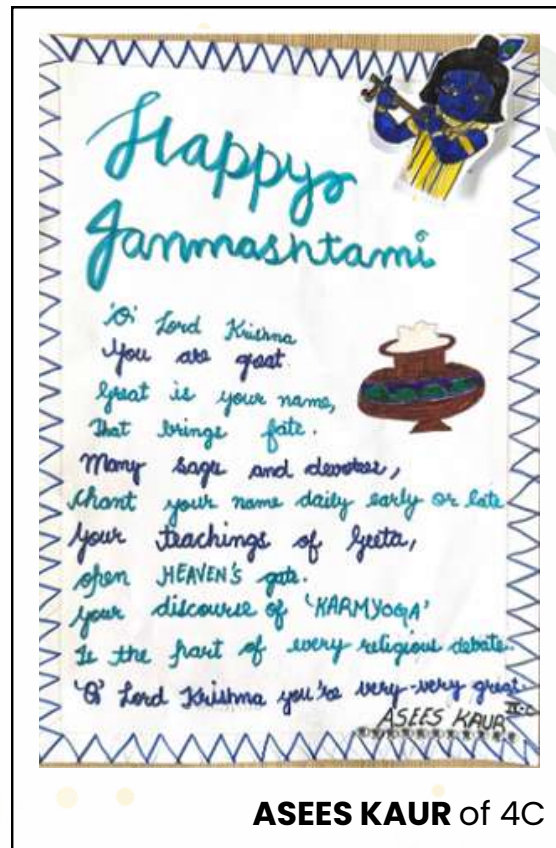 Happy
Janmashtami
'O' Lord Krishna
You are great.
Great is your name,
That brings fate.
Many sage and devotees,
Chant your name daily early or late
Your teachings of Geeta,
open HEAVEN'S gate.
your discourse of 'KARMYOGA'
Is the part of every religious debate.
'O' Lord Krishna you're very-very great.
ASEES KAUR
ASEES KAUR of 4C